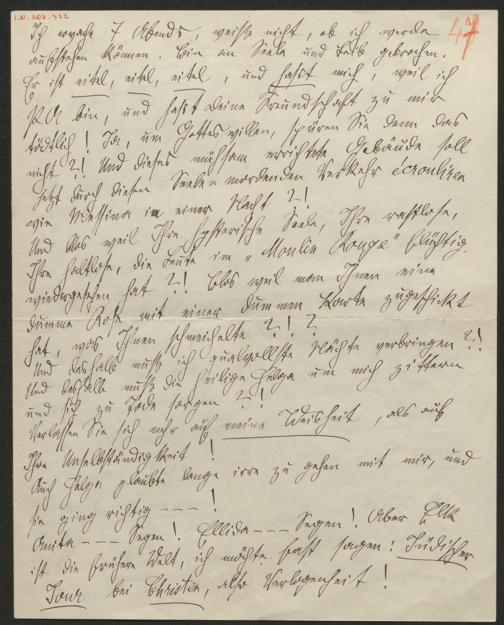 I.N. 203.322
47
Ich erwache 7 Abends, weiß nicht, ob ich werde
aufstehen können. Bin an Seele und Leib gebrochen.
Er ist eitel, eitel, eitel, und haßt mich, weil ich
P. A. bin, und haßt deine Freundschaft zu mir
tödtlich! Ja, um Gotteswillen, spüren Sie denn das
nicht ?! Und dieses mühsam errichtete Gebäude soll
jetzt durch diesen Seele-mordenden Verkehr écroulieren
wie Messina in einer Nacht ?!
Und blos weil Ihre hysterische Seele, Ihre rastlose,
Ihre haltlose, die Leute im "Moulin Rouge" flüchtig
wiedergesehen hat ?!! Blos weil man Ihnen eine
dumme Rose mit einer dummen Karte zugeschickt
hat, was Ihnen schmeichelte ?!?
Und deshalb muß ich qualvollste Nächte verbringen ?!
Und deshalb muß die heilige Helga um mich zittern
und sich zu Tode sorgen ?!!
Verlassen Sie sich mehr auf meine Weisheit, als auf
Ihre Unselbstständigkeit!
Auch Helga glaubte lange irre zu gehen mit mir, und
sie ging richtig ---!
Anita --- Segen! Ellida --- Segen! Aber
ist die frühere Welt, ich möchte fast sagen: Jüdischer
bei Christen, also Verlogenheit!